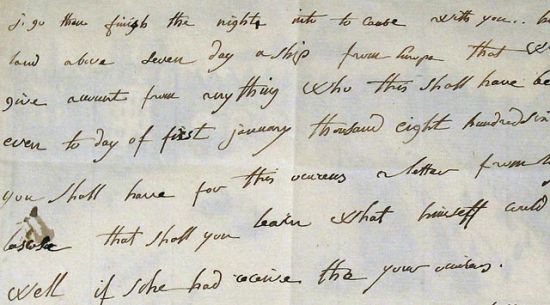 j. go then finish the night, into to cause with you..
land above seven day a ship from Europa that
give account from any thing who this shall have be
even to day of first january thousand eight hundred six
you shall have for this a letter from
that shall you learn what himself could
well if she had receive the your